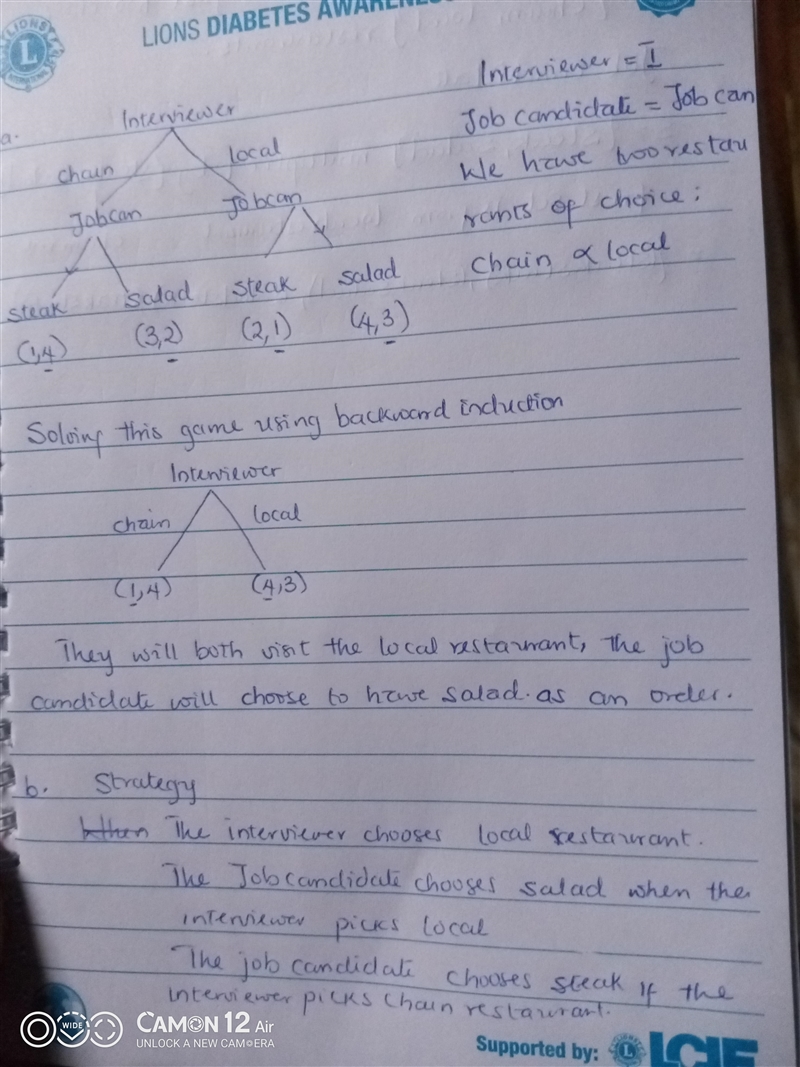 LIONS DIABETES AWARENESS
LIONS
L
Interviewer = I
Job candidate = Job can
We have two restau
rants of choice:
chain & local
a.
Interviewer
chain
local
Jobcan
Jobcan
steak
salad
steak
salad
(1,4)
(3,2)
(2,1)
(4,3)
Solving this game using backward induction
Interviewer
chain
local
(1,4)
(4,3)
They will both visit the local restaurant, the job
candidate will choose to have salad. as an order.
b. Strategy
When The interviewer chooses local restaurant.
The Jobcandidate chooses salad when the
interviewer picks local
The job candidate chooses steak if the
interviewer picks chain restaurant.
WIDE
CAMON 12 Air
UNLOCK A NEW CAMERA
Supported by:
LCIF